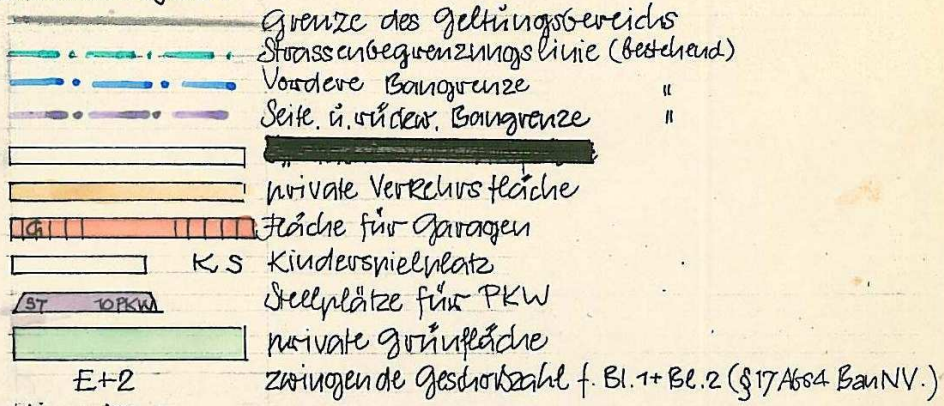 Grenze des Geltungsbereichs
Strassenbegrenzungslinie (bestehend)
Vordere Baugrenze "
Seitl. ü. rückw. Baugrenze "
private Verkehrsfläche
G Fläche für Garagen
K S Kinderspielplatz
ST 10PKW Stellplätze für PKW
private Grünfläche
E+2 zwingende Geschoßzahl f. Bl.1+Bl.2 (§17 Abs4 BauNV.)